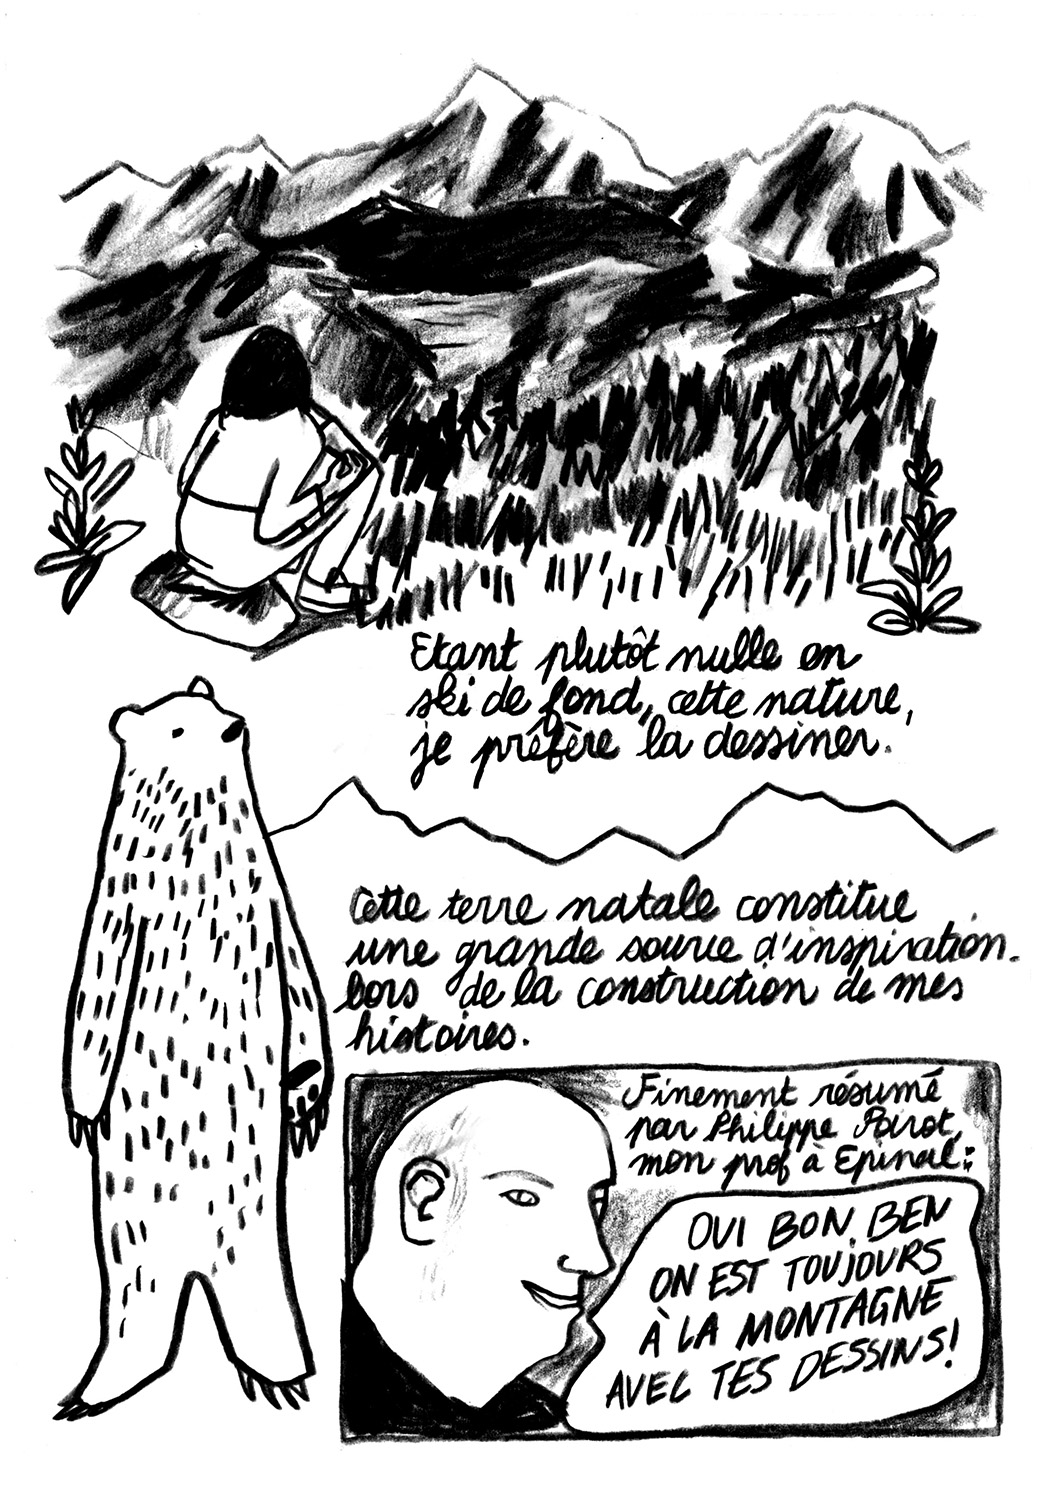 Etant plutôt nulle en
ski de fond, cette nature,
je préfère la dessiner.
Cette terre natale constitue
une grande source d'inspiration.
lors de la construction de mes
histoires.
Finement résumé
par Philippe Poirot,
mon prof à Epinal :
OUI BON, BEN
ON EST TOUJOURS
À LA MONTAGNE
AVEC TES DESSINS!